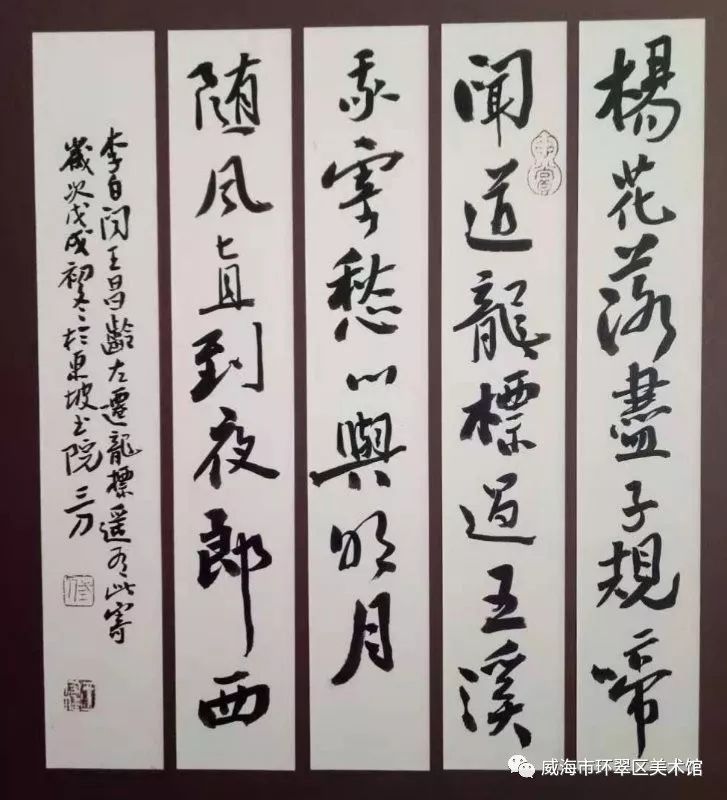 楊花落盡子規啼
聞道龍標過五溪
我寄愁心與明月
随風直到夜郎西
李白闻王昌齡左遷龍標遥有此寄
歲次戊戌初冬於東坡书院 三刀
威海市环翠区美术馆